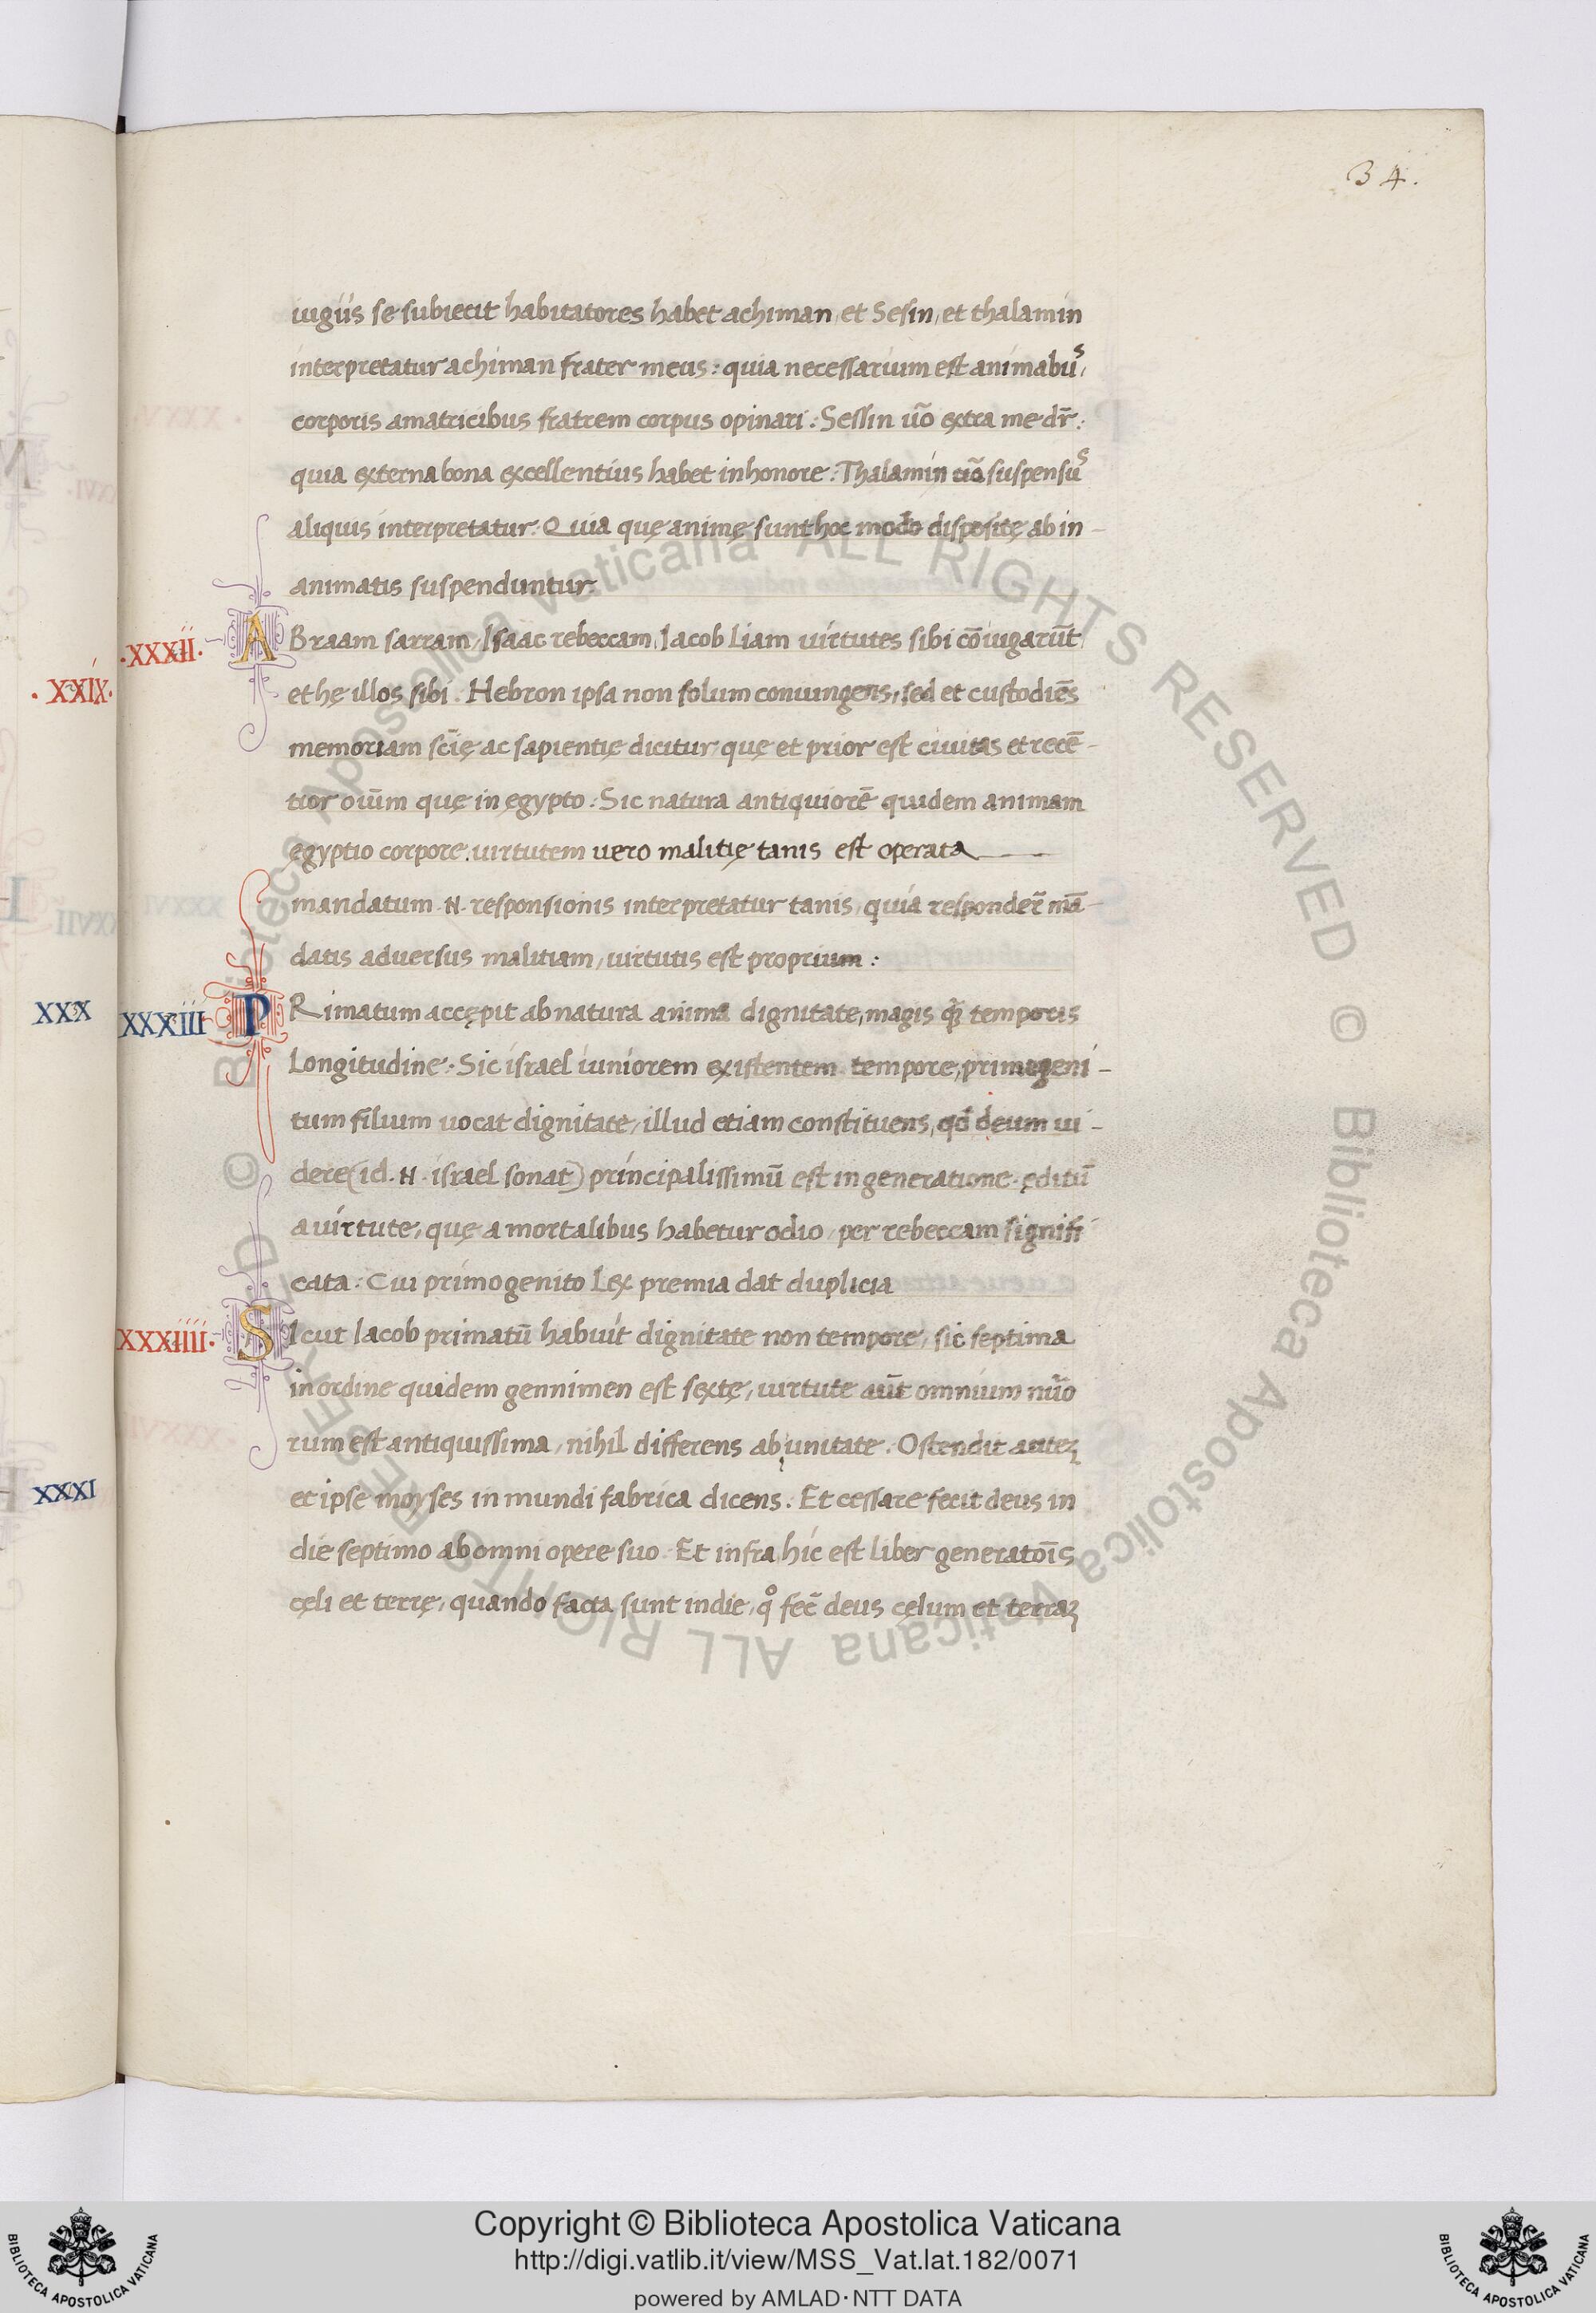 34.
iugiis se subiecit habitatores habet achiman, et Sesin, et thalamin
interpretatur achiman frater meus: quia necessarium est animabuˢ,
corporis amatricibus fratrem corpus opinari: Sessin ũo extra me dr̃:
quia externa bona excellentius habet in honore: Thalamin suspensuˢ
aliquis interpretatur. Quia quę animę sunt hoc modo dispositę ab in-
animatis suspenduntur.
.XXXII. ABraam sarram, Isaac rebeccam, Iacob Liam uirtutes sibi cōiugarūt
et hę illos sibi. Hebron ipsa non solum coniungens, sed et custodiēs
memoriam scīę ac sapientię dicitur, quę et prior est ciuitas et recē-
tior oiūm quę in ęgypto: Sic natura antiquiorē quidem animam
ęgyptio corpore, uirtutem uero malitię tanis est operata
mandatum .N. responsionis interpretatur tanis, quia responder̃ mā-
datis aduersus malitiam, uirtutis est proprium:
XXXIII PRimatum accępit ab natura anima dignitate, magis q̃ temporis
Longitudine. Sic israel iuniorem existentem tempore, primogeni-
tum filium uocat dignitate, illud etiam constituens, qđ deum ui-
dere (id .N. israel sonat) principalissimū est in generatione. ęditū
a uirtute, quę a mortalibus habetur odio, per rebeccam signifi
cata: Cui primogenito Lex premia dat duplicia
XXXIIII. SIcut Iacob primatū habuit dignitate non tempore, sic septima
in ordine quidem gennimen est sextę, uirtute aūt omnium nūo
rum est antiquissima, nihil differens ab unitate. Ostendit auteȝ
et ipse moyses in mundi fabrica dicens. Et cessare fecit deus in
die septimo ab omni opere suo. Et infra, hic est liber generatōis
cęli et terrę, quando facta sunt in die, q° fec̃ deus cęlum et terraȝ
. XXIX.
XXX
XXXI
Biblioteca Apostolica Vaticana ALL RIGHTS RESERVED © Biblioteca Apostolica Vaticana ALL RIGHTS RESERVED ©
Copyright © Biblioteca Apostolica Vaticana
http://digi.vatlib.it/view/MSS_Vat.lat.182/0071
powered by AMLAD·NTT DATA
BIBLIOTECA APOSTOLICA VATICANA
BIBLIOTECA APOSTOLICA VATICANA